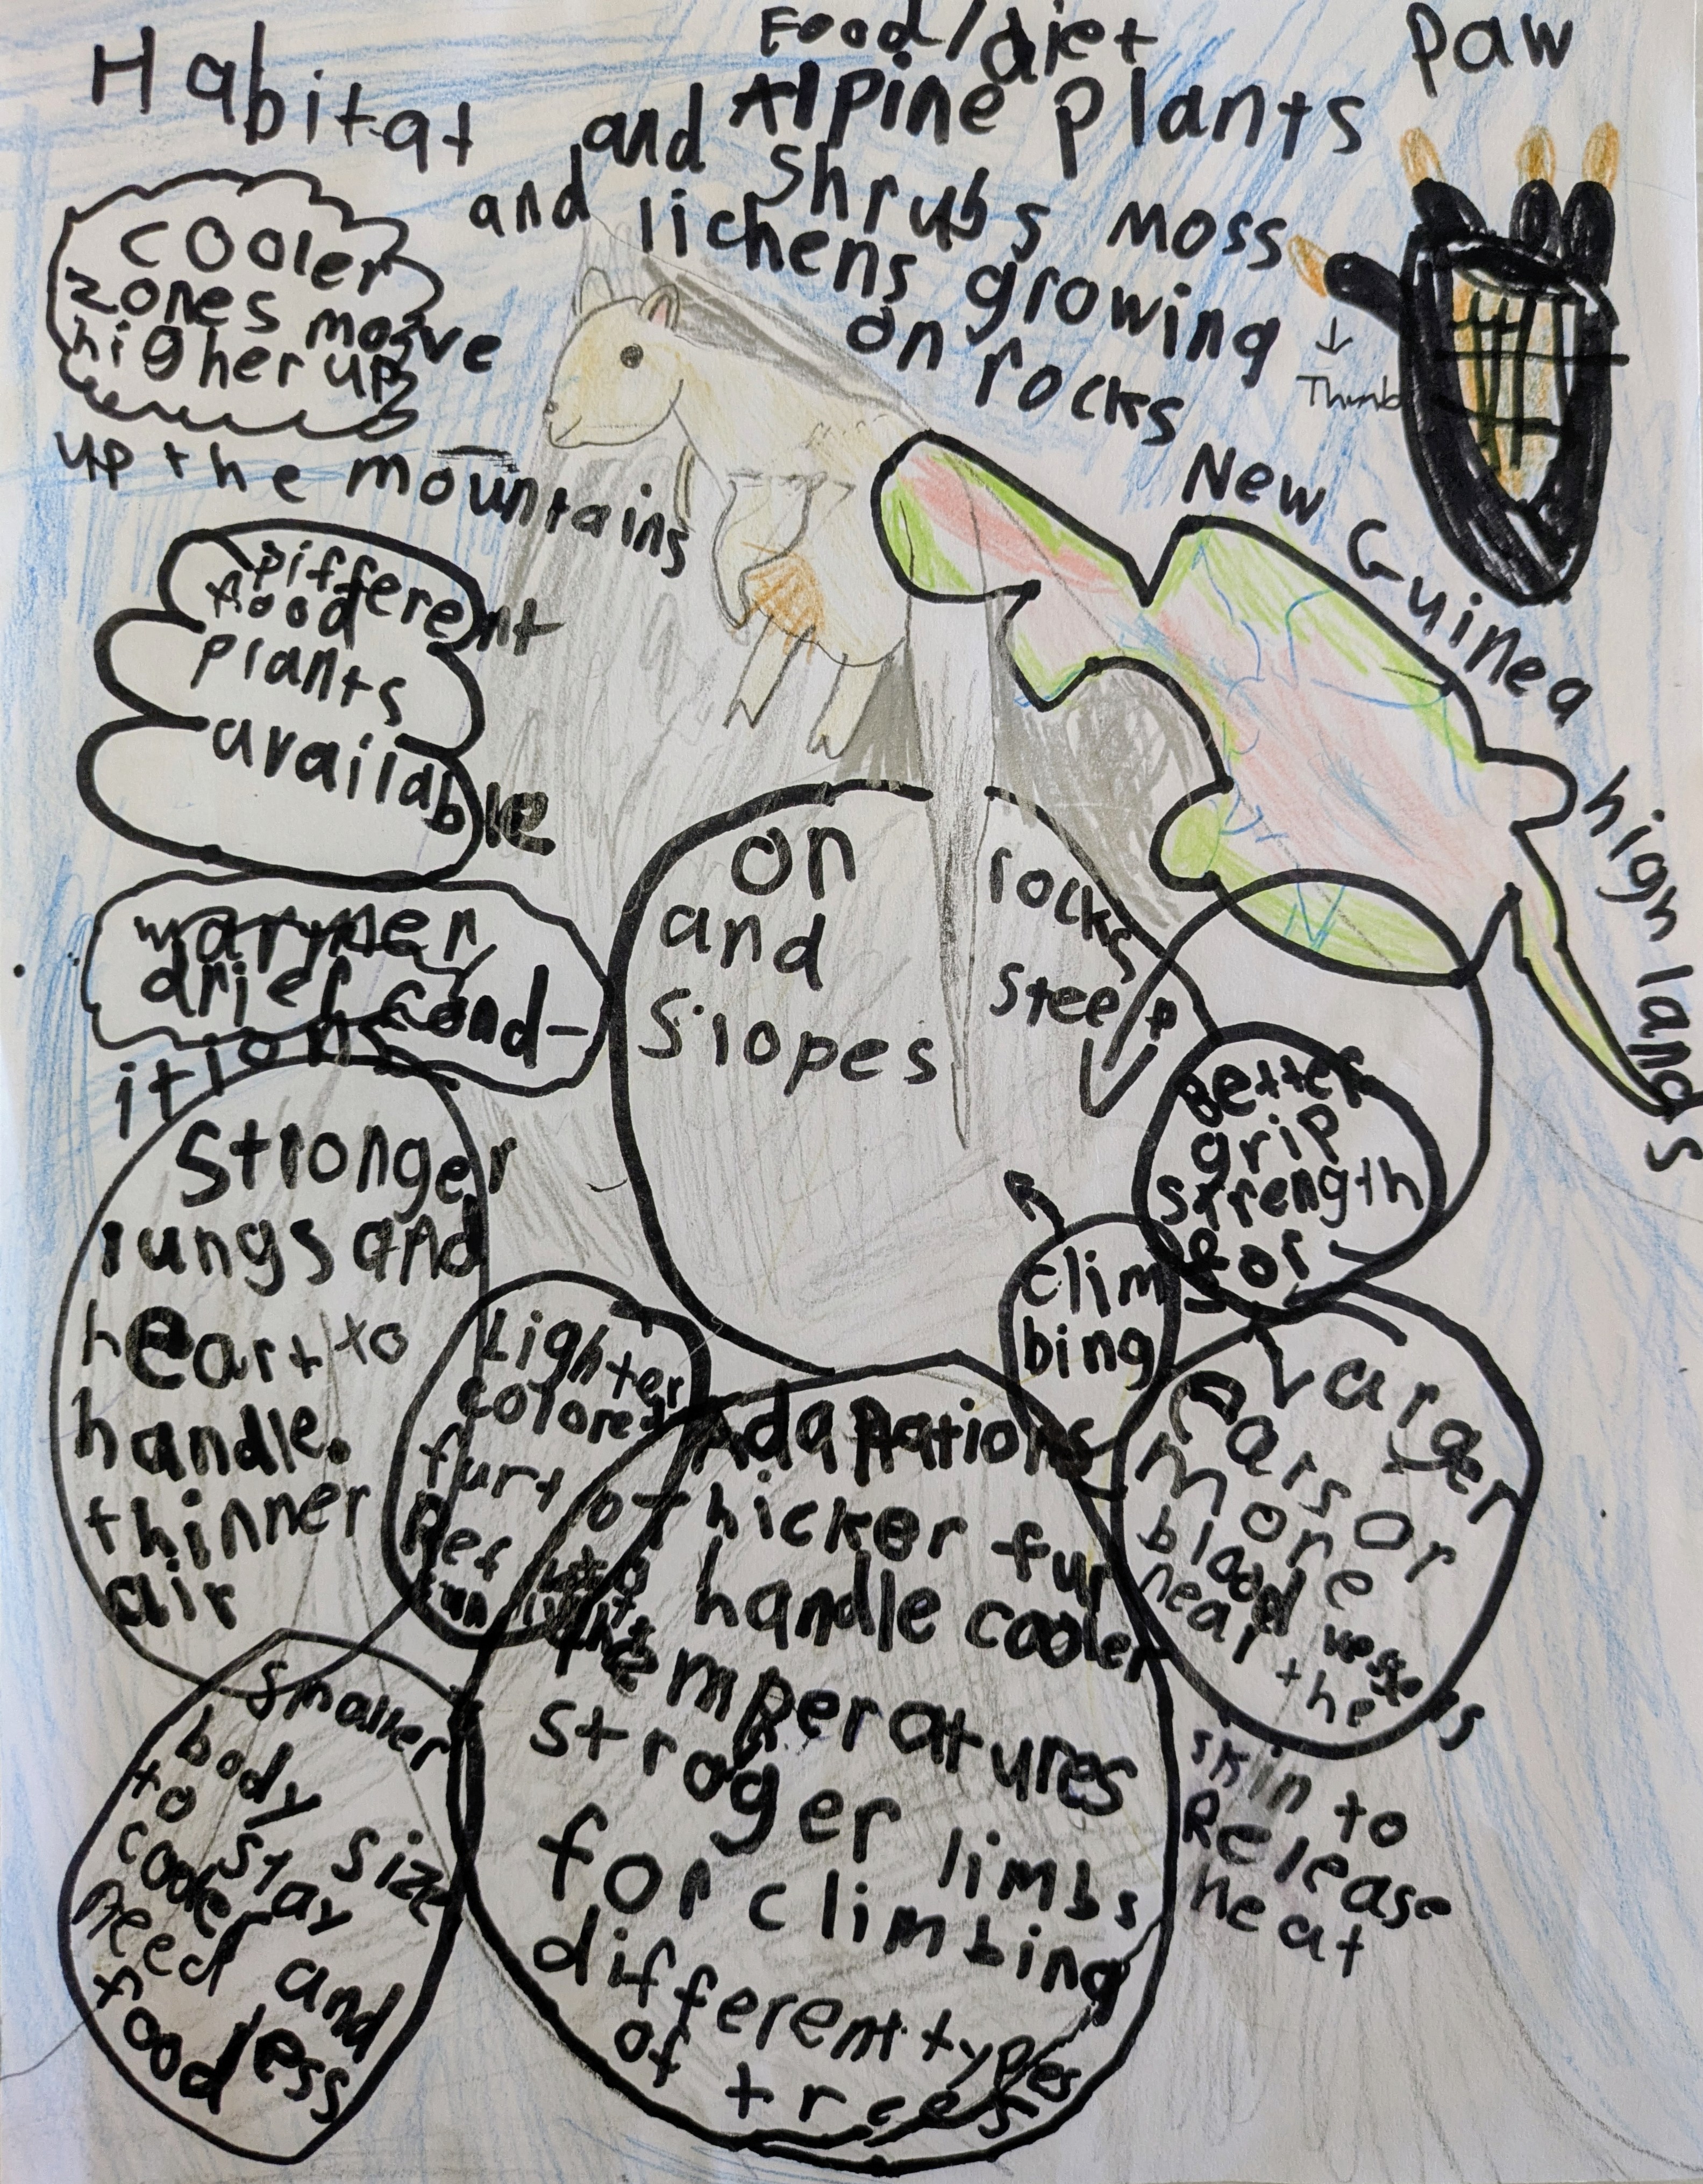 Habitat
cooler
zones move
higher up
up the mountains
Different
food
plants
available
warmer,
drier cond-
itions
Food/diet
Alpine plants
and shrubs moss
and lichens growing
on rocks
Paw
↓
Thumb
New Guinea
high lands
on rocks
and steep
slopes
Better
grip
strength
for
clim
bing
Stronger
lungs and
heart to
handle.
thinner
air
Lighter
colored
fur to
Ref
Adaptations
thicker fur
handle cooler
temperatures
stroger limbs
for climbing
different types
of trees
Larger
Ears or
more
blood
near the
skin to
Release
heat
smaller
body size
to stay
cooler and
need less
food